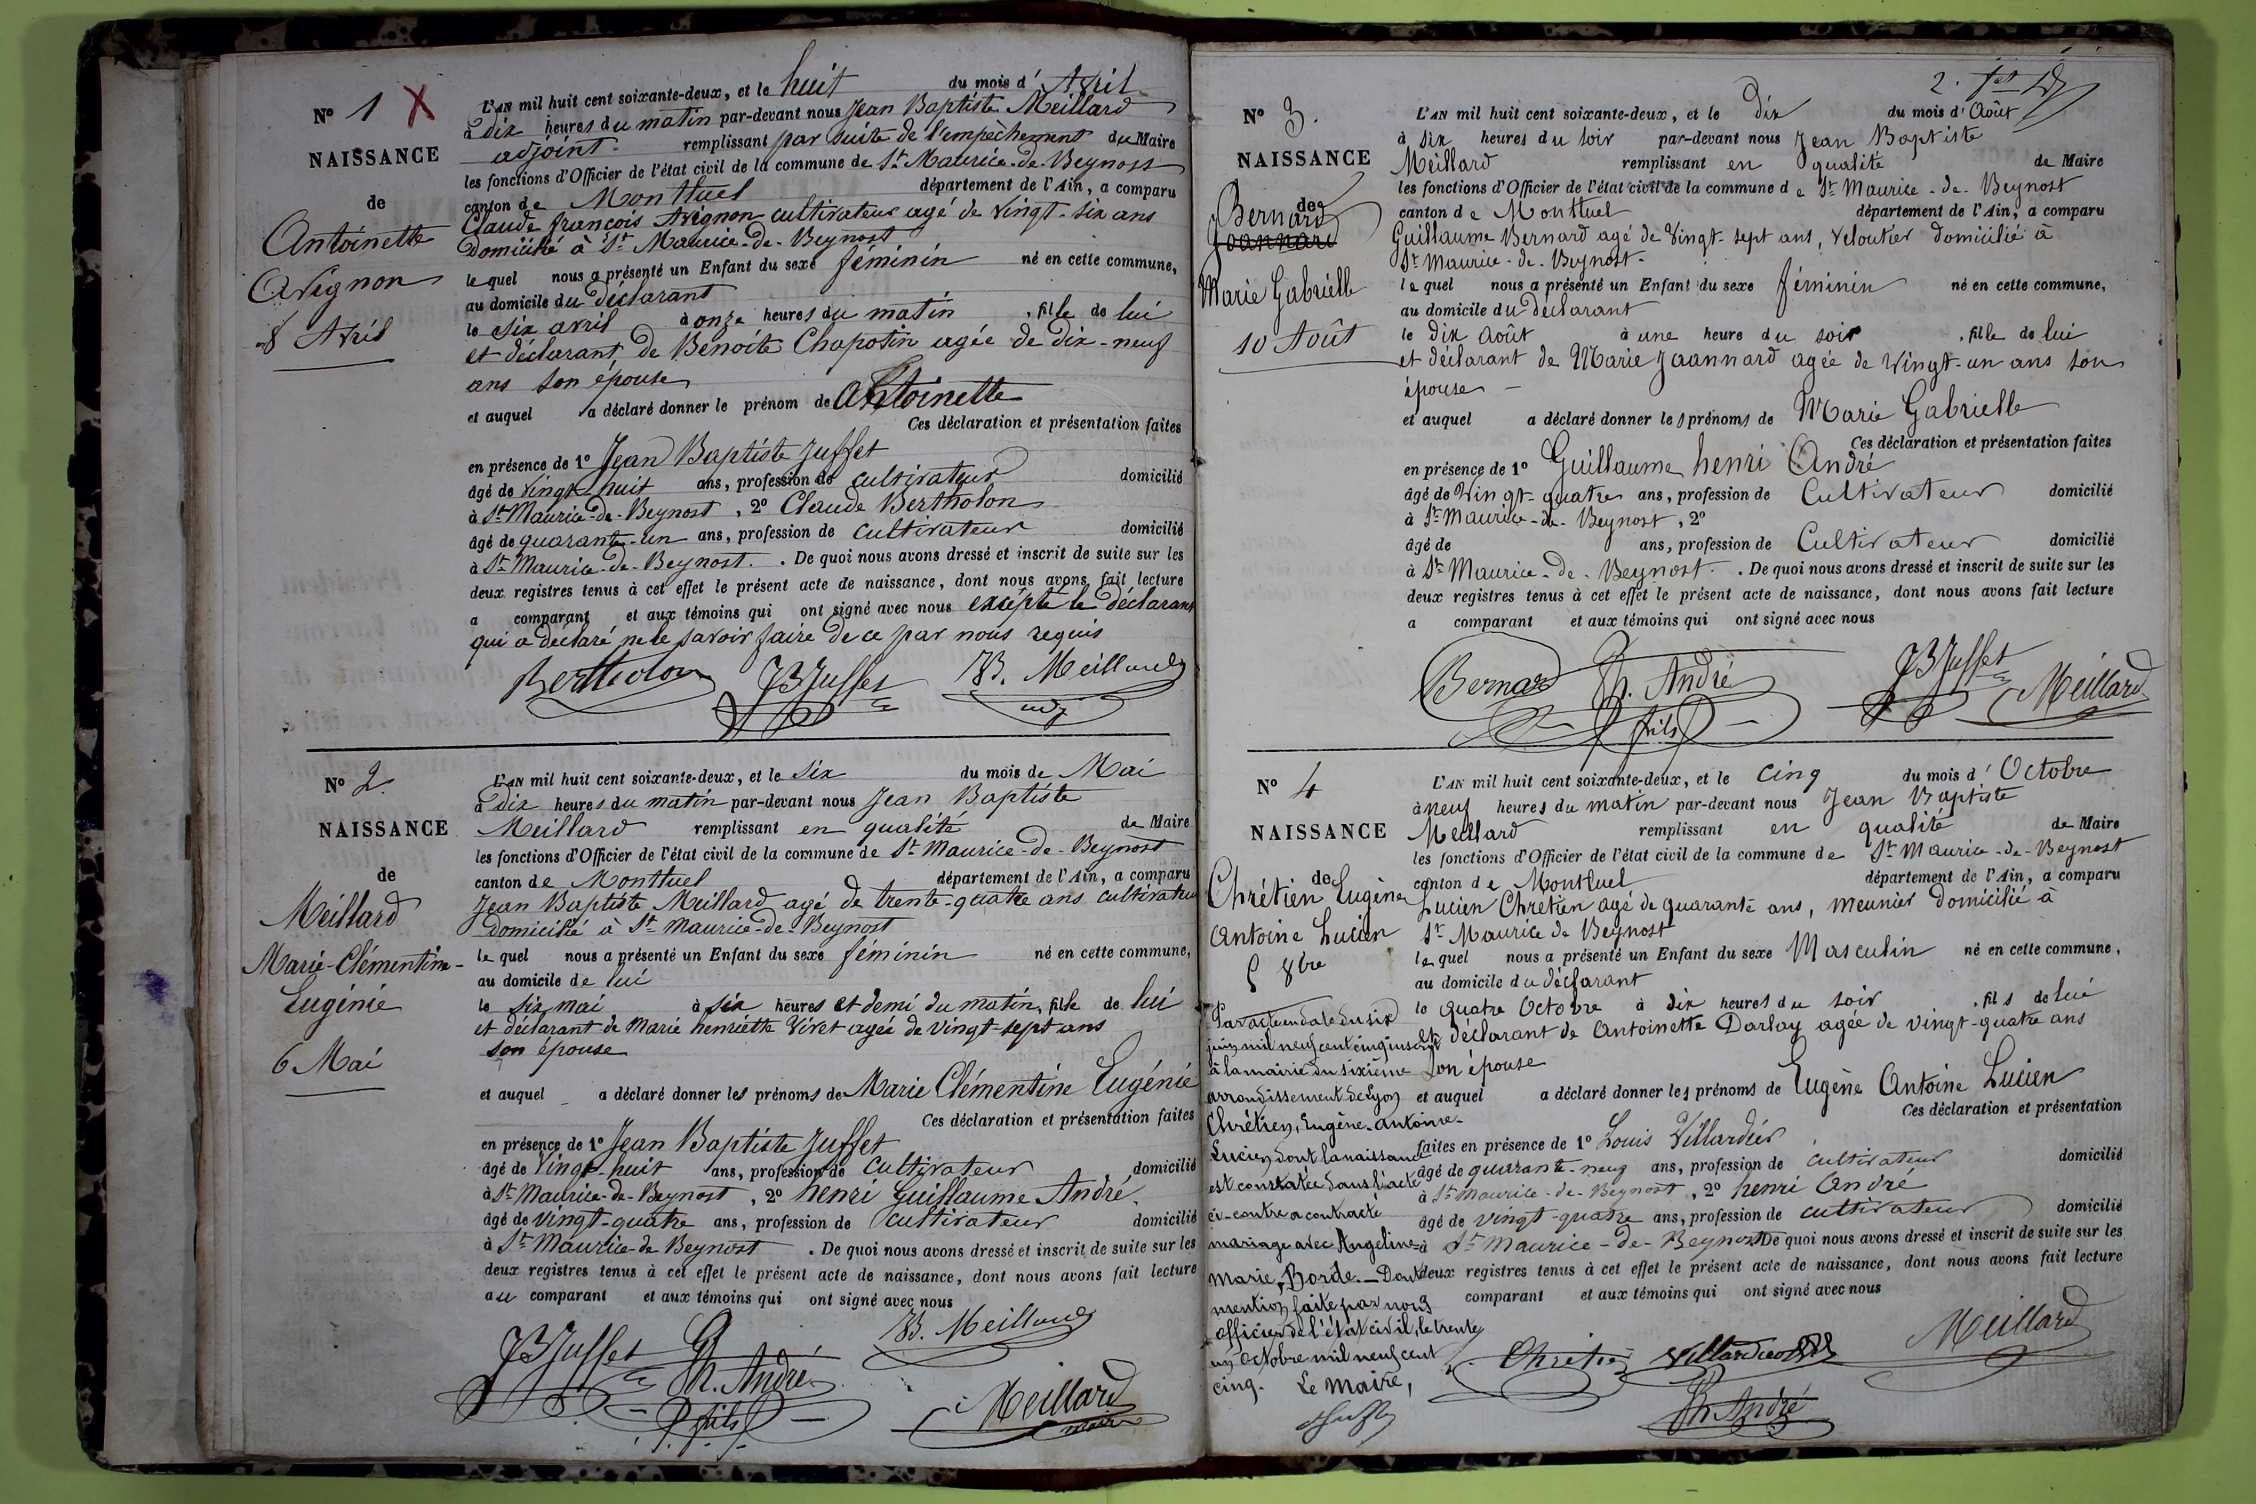 N° 1 X
NAISSANCE
de
Antoinette
Avignon
8 Avril
L'AN mil huit cent soixante-deux, et le huit du mois d'Avril
à dix heures du matin par-devant nous Jean Baptiste Meillard
adjoint remplissant par suite de l'empêchement du Maire
les fonctions d'Officier de l'état civil de la commune de St Maurice-de-Beynost
canton de Montluel département de l'Ain, a comparu
Claude françois Avignon cultivateur agé de vingt-six ans
domicilié à St Maurice-de-Beynost
le quel nous a présenté un Enfant du sexe féminin né en cette commune,
au domicile du déclarant
le six avril à onze heures du matin, fille de lui
et déclarant de Benoite Chapotin agée de dix-neuf
ans son épouse
et auquel a déclaré donner le prénom de Antoinette
Ces déclaration et présentation faites
en présence de 1° Jean Baptiste Juffet
âgé de vingt-huit ans, profession de cultivateur domicilié
à St Maurice-de-Beynost, 2° Claude Bertholon
âgé de quarante-un ans, profession de cultivateur domicilié
à St Maurice-de-Beynost. De quoi nous avons dressé et inscrit de suite sur les
deux registres tenus à cet effet le présent acte de naissance, dont nous avons fait lecture
a comparant et aux témoins qui ont signé avec nous excepté le déclarant
qui a déclaré ne le savoir faire de ce par nous requis
Bertholon JB Juffet JB. Meillard
adj
N° 2
NAISSANCE
de
Meillard
Marie-Clémentine-
Eugénie
6 Mai
L'AN mil huit cent soixante-deux, et le six du mois de Mai
à dix heures du matin par-devant nous Jean Baptiste
Meillard remplissant en qualité de Maire
les fonctions d'Officier de l'état civil de la commune de St Maurice-de-Beynost
canton de Montluel département de l'Ain, a comparu
Jean Baptiste Meillard agé de trente-quatre ans cultivateur
domicilié à St Maurice-de-Beynost
le quel nous a présenté un Enfant du sexe féminin né en cette commune,
au domicile de lui
le six mai à six heures et demi du matin, fille de lui
et déclarant de Marie henriette Vivet agée de vingt-sept ans
son épouse
et auquel a déclaré donner les prénoms de Marie Clémentine Eugénie
Ces déclaration et présentation faites
en présence de 1° Jean Baptiste Juffet
âgé de vingt-huit ans, profession de cultivateur domicilié
à St Maurice-de-Beynost, 2° henri Guillaume André
âgé de vingt-quatre ans, profession de cultivateur domicilié
à St Maurice-de-Beynost. De quoi nous avons dressé et inscrit de suite sur les
deux registres tenus à cet effet le présent acte de naissance, dont nous avons fait lecture
au comparant et aux témoins qui ont signé avec nous
JB Juffet h. André JB. Meillard
fils Meillard
maire
2.
N° 3.
NAISSANCE
de
Bernard
Joannard
Marie Gabrielle
10 Août
L'AN mil huit cent soixante-deux, et le dix du mois d'Août
à six heures du soir par-devant nous Jean Baptiste
Meillard remplissant en qualité de Maire
les fonctions d'Officier de l'état civil de la commune de St Maurice-de-Beynost
canton de Montluel département de l'Ain, a comparu
Guillaume Bernard agé de vingt-sept ans, veloutier domicilié à
St Maurice-de-Beynost.
le quel nous a présenté un Enfant du sexe féminin né en cette commune,
au domicile du déclarant
le dix août à une heure du soir, fille de lui
et déclarant de Marie Joannard agée de vingt-un ans son
épouse -
et auquel a déclaré donner les prénoms de Marie Gabrielle
Ces déclaration et présentation faites
en présence de 1° Guillaume henri André
âgé de vingt-quatre ans, profession de Cultivateur domicilié
à St Maurice-de-Beynost, 2°
âgé de ans, profession de Cultivateur domicilié
à St Maurice-de-Beynost. De quoi nous avons dressé et inscrit de suite sur les
deux registres tenus à cet effet le présent acte de naissance, dont nous avons fait lecture
a comparant et aux témoins qui ont signé avec nous
Bernard h. André JB Juffet Meillard
fils
N° 4
NAISSANCE
de
Chrétien Eugène
Antoine Lucien
5 8bre
Par acte en date du six
juin mil neuf cent cinq inscrit
à la mairie du sixième
arrondissement de Lyon
Chrétien, Eugène-Antoine-
Lucien dont la naissance
est constatée dans l'acte
ci-contre a contracté
mariage avec Angeline
Marie, Borde. — Dont
mention faite par nous
officier de l'état civil, le trente
un octobre mil neuf cent
cinq. Le Maire,
L'AN mil huit cent soixante-deux, et le cinq du mois d'Octobre
à neuf heures du matin par-devant nous Jean Baptiste
Meillard remplissant en qualité de Maire
les fonctions d'Officier de l'état civil de la commune de St Maurice-de-Beynost
canton de Montluel département de l'Ain, a comparu
Lucien Chrétien agé de quarante ans, meunier domicilié à
St Maurice de Beynost
le quel nous a présenté un Enfant du sexe Masculin né en cette commune,
au domicile du déclarant
le quatre Octobre à dix heures du soir, fils de lui
et déclarant de Antoinette Darlay agée de vingt-quatre ans
son épouse
et auquel a déclaré donner les prénoms de Eugène Antoine Lucien
Ces déclaration et présentation
faites en présence de 1° Louis Villardier
âgé de quarante-neuf ans, profession de cultivateur domicilié
à St Maurice-de-Beynost, 2° henri André
âgé de vingt-quatre ans, profession de cultivateur domicilié
à St Maurice-de-Beynost De quoi nous avons dressé et inscrit de suite sur les
deux registres tenus à cet effet le présent acte de naissance, dont nous avons fait lecture
comparant et aux témoins qui ont signé avec nous
Chrétien Villardier Meillard
h André